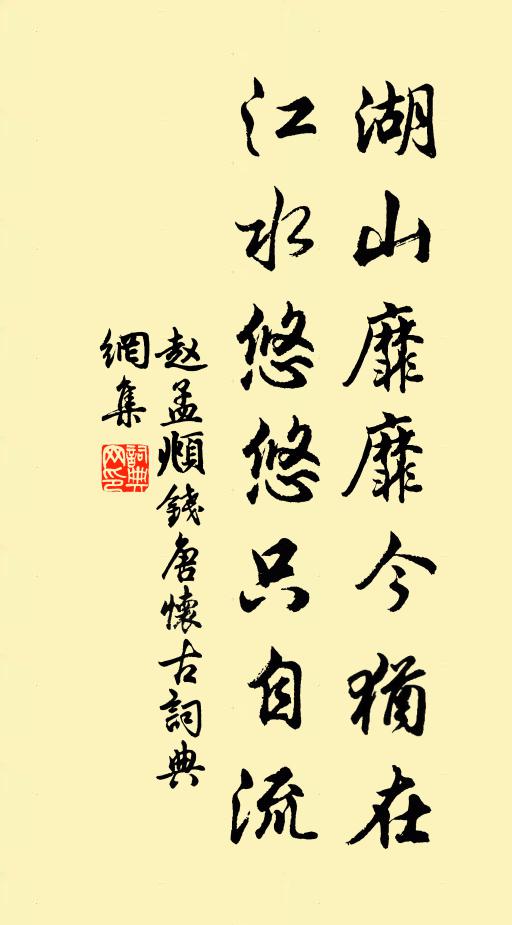 湖山靡靡今猶在
江水悠悠只自流
赵孟頫錢唐懷古詞典
網集
詞典
网印